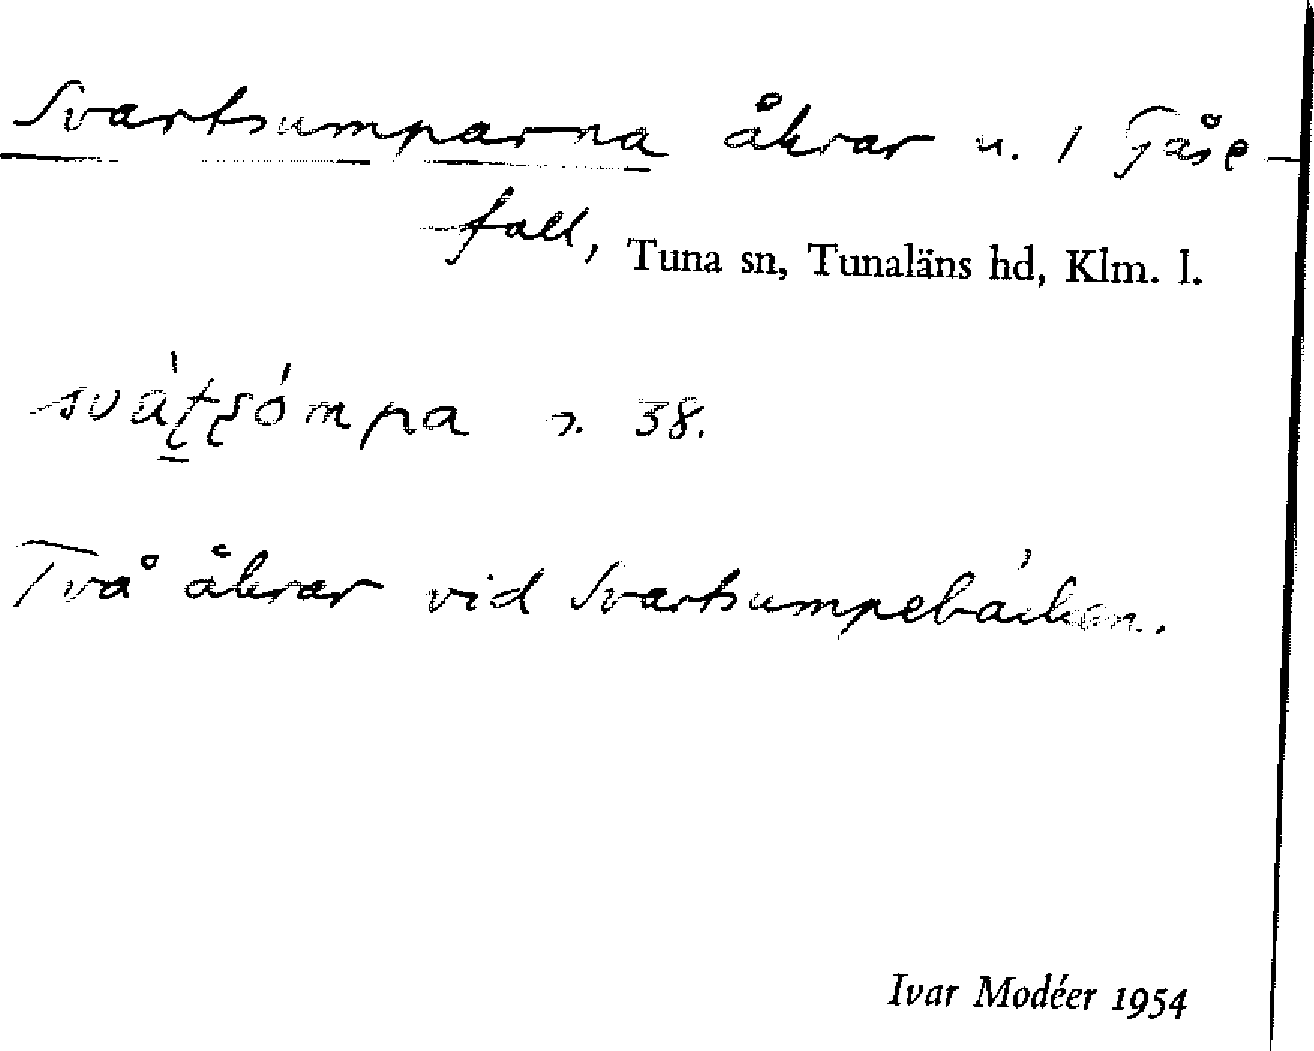 Svartsumparna åkrar u. 1 Gåse-
fall, Tuna sn, Tunaläns hd, Klm. l.
svat̠sómpa s. 38.
Två åkrar vid Svartsumpebäcken.
Ivar Modéer 1954